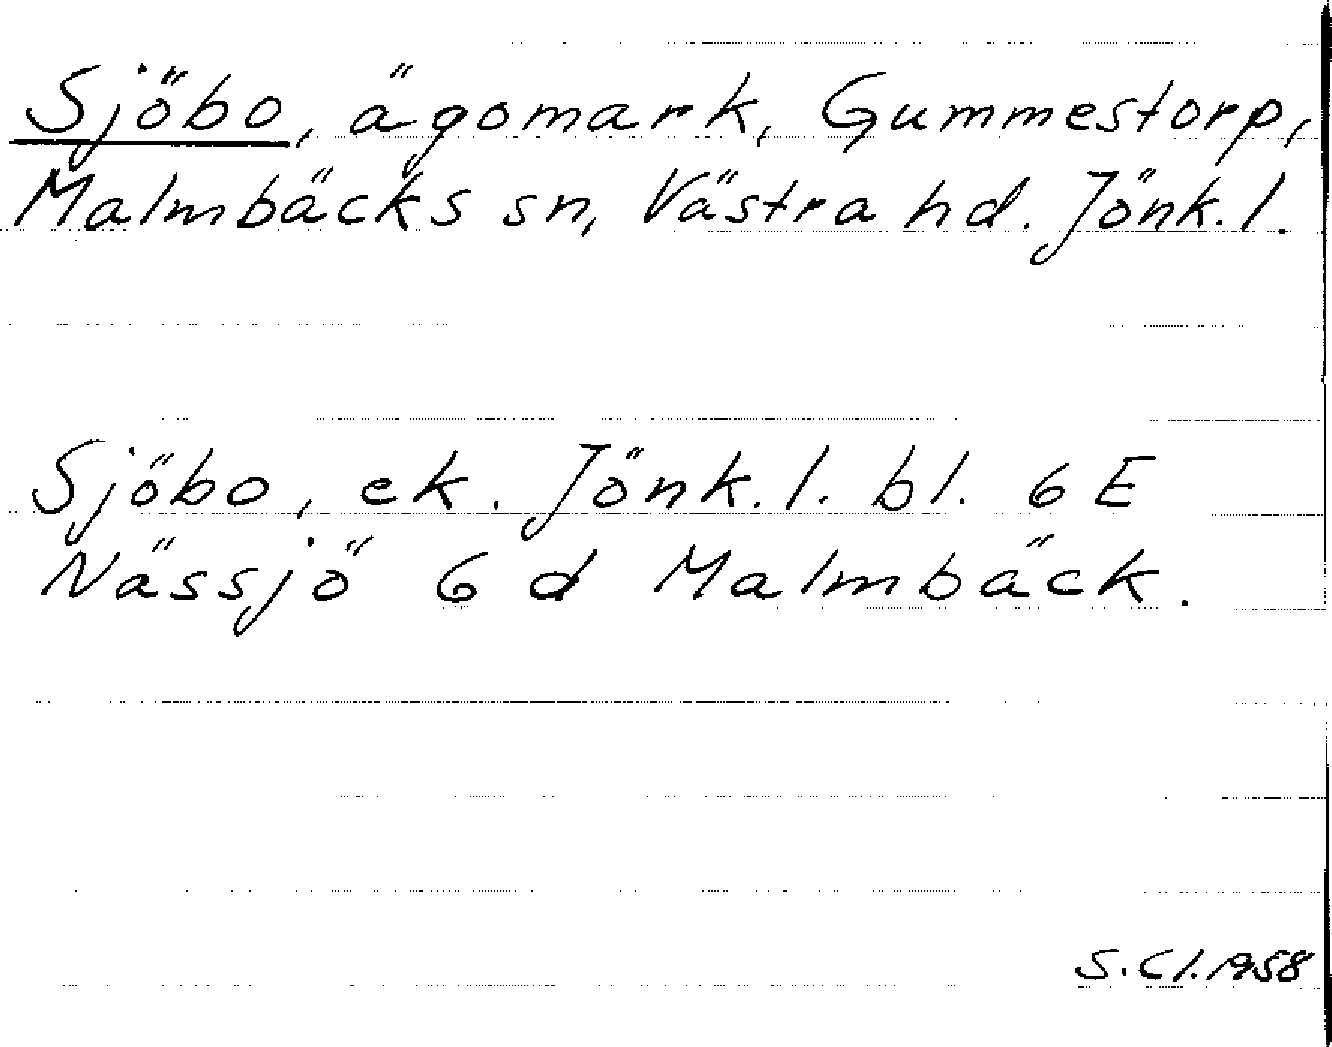 Sjöbo, ägomark, Gummestorp,
Malmbäcks sn, Västra hd. Jönk. l.
Sjöbo, ek. Jönk. l. bl. 6 E
Nässjö 6 d Malmbäck.
S. Cl. 1958